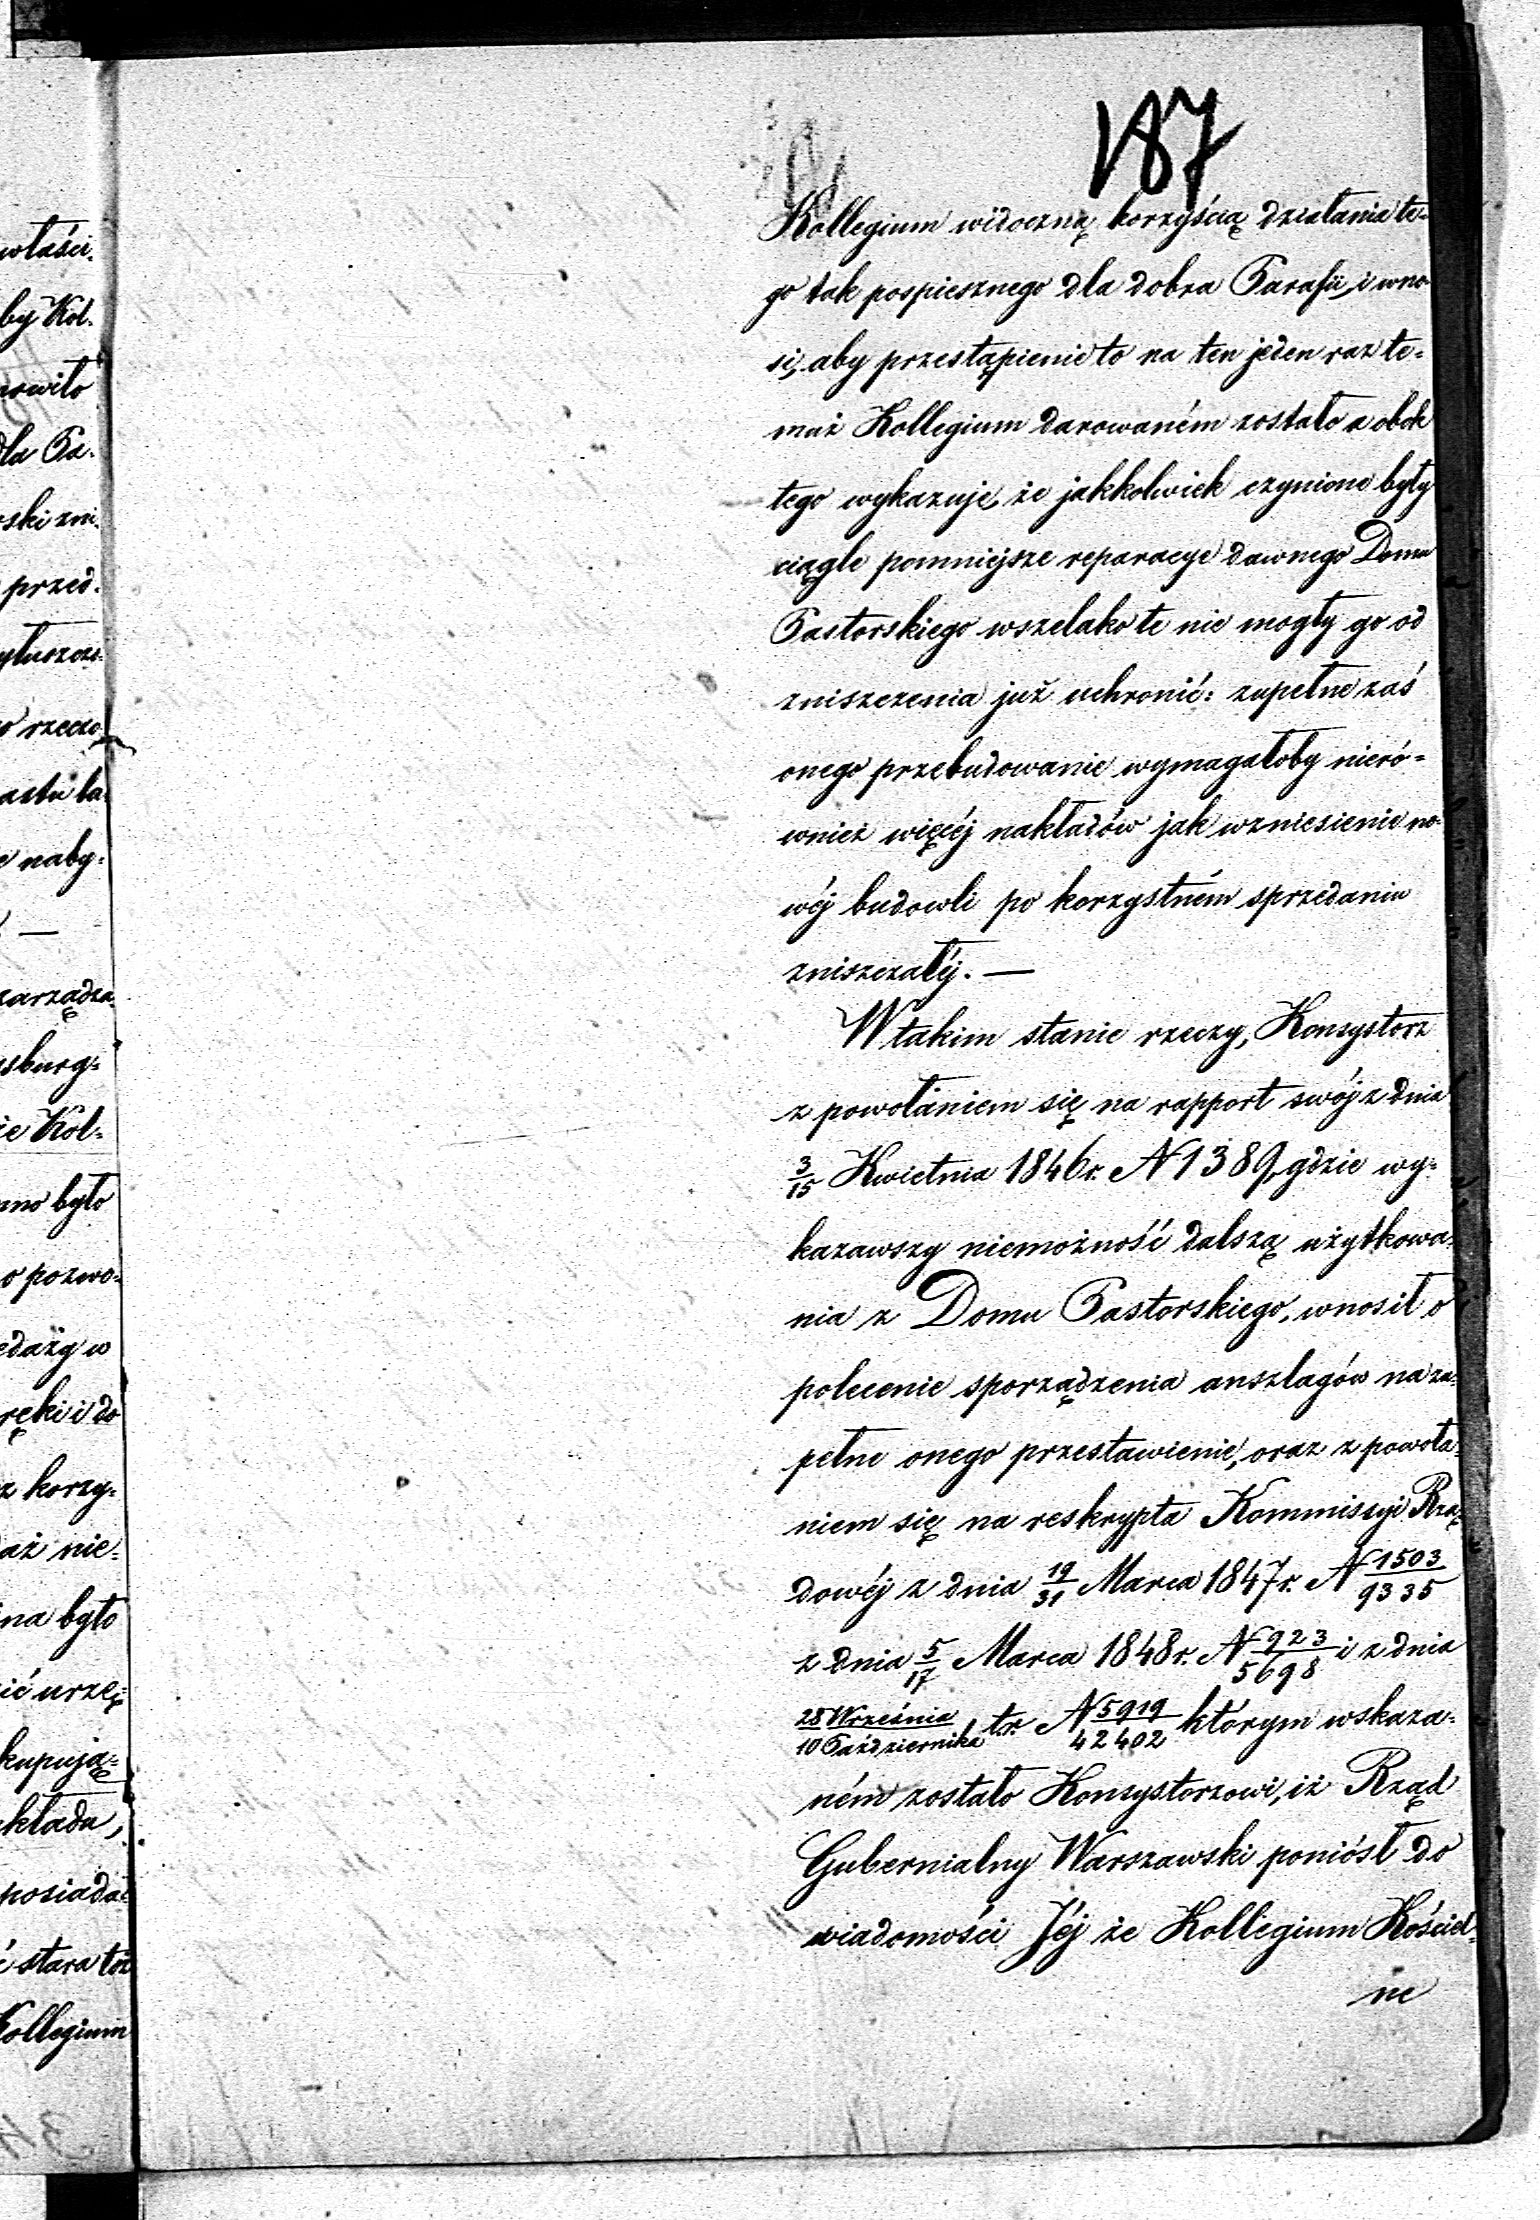 187
Kollegium widoczną korzyścią działania te-
go tak pospiesznego dla dobra Parafii, i wno-
si, aby przestąpienie to na ten jeden raz te-
muż Kollegium darowaném zostało a obok
tego wykazuje, że jakkolwiek czynione były
ciągle pomniejsze reparacye dawnego Domu
Pastorskiego wszelako te nie mogły go od
zniszczenia już uchronić: zupełne zaś
onego przebudowanie wymagałoby nieró-
wnież więcéj nakładów jak wzniesienie no-
wéj budowli po korzystném sprzedaniu
zniszczałéj. —
W takim stanie rzeczy, Konsystorz
z powołaniem się na rapport swój z dnia
3/15 Kwietnia 1846 r. N 1389, gdzie wy-
kazawszy niemożność dalszą użytkowa-
nia z Domu Pastorskiego, wnosił o
polecenie sporządzenia anszlagów na zu-
pełne onego przestawienie, oraz z powoła-
niem się na reskrypta Kommissyi Rzą-
dowéj z dnia 19/31 Marca 1847 r. N 1503/9335
z dnia 5/17 Marca 1848 r. N 923/5698 i z dnia
28 Września/10 Października t.r. N 5919/42402 którym wskaza-
ném zostało Konsystorzowi, iż Rząd
Gubernialny Warszawski poniósł do
wiadomości Jéj że Kollegium Kościel-
ne
właści-
by Kol-
nowiło
dla Pa-
rski zni-
przed-
rzeczo
naby-
—
zarządza-
sburg-
ie Kol-
nno było
o pozwo-
edaży w
ręki i do
z korzy-
aż nie-
na było
ić urzę-
kupują-
kłada,
posiada-
ć stara
Kollegium